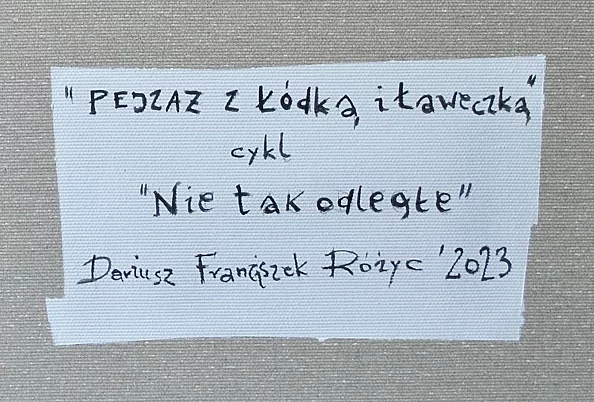 "PEJZAŻ Z ŁÓDKĄ i ŁAWECZKĄ"
cykl
"Nie tak odległe"
Dariusz Franciszek Różyc '2023